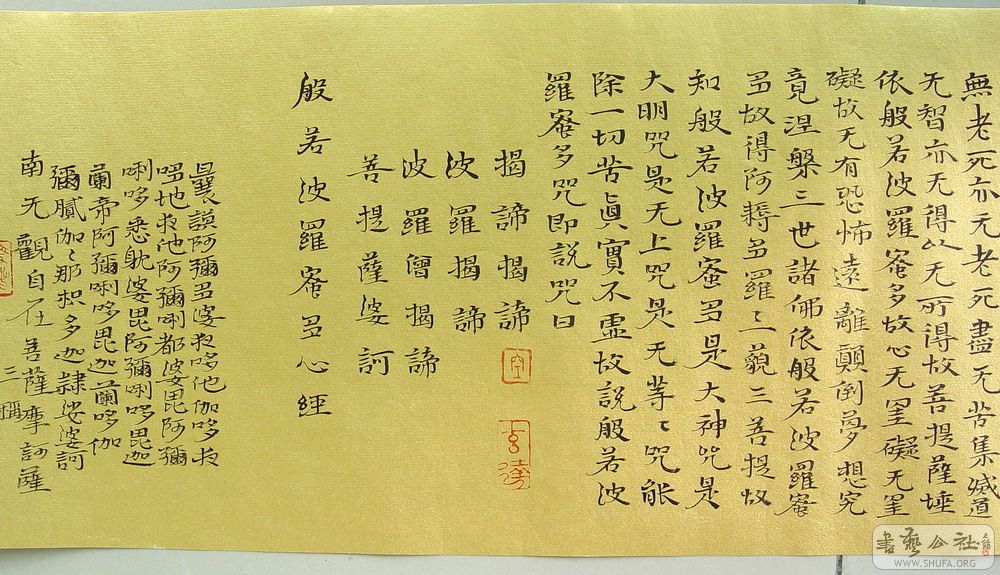 無老死亦无老死盡无苦集滅道
无智亦无得以无所得故菩提薩埵
依般若波羅蜜多故心无罣礙无罣
礙故无有恐怖遠離顛倒夢想究
竟涅槃三世諸佛依般若波羅蜜
多故得阿耨多羅三藐三菩提故
知般若波羅蜜多是大神咒是
大明咒是无上咒是无等〻咒能
除一切苦真實不虛故說般若波
羅蜜多咒即說咒曰
揭諦揭諦
波羅揭諦
波羅僧揭諦
菩提薩婆訶
般若波羅蜜多心經
曩謨阿彌多婆夜哆他伽哆夜
哆地夜他阿彌唎都婆毘阿彌
唎哆悉耽婆毘阿彌唎哆毘迦
蘭帝阿彌唎哆毘迦蘭哆伽
彌膩伽〻那枳多迦隸娑婆訶
南无觀自在菩薩摩訶薩
三稱
空
玄
書藝公社
WWW.SHUFA.ORG